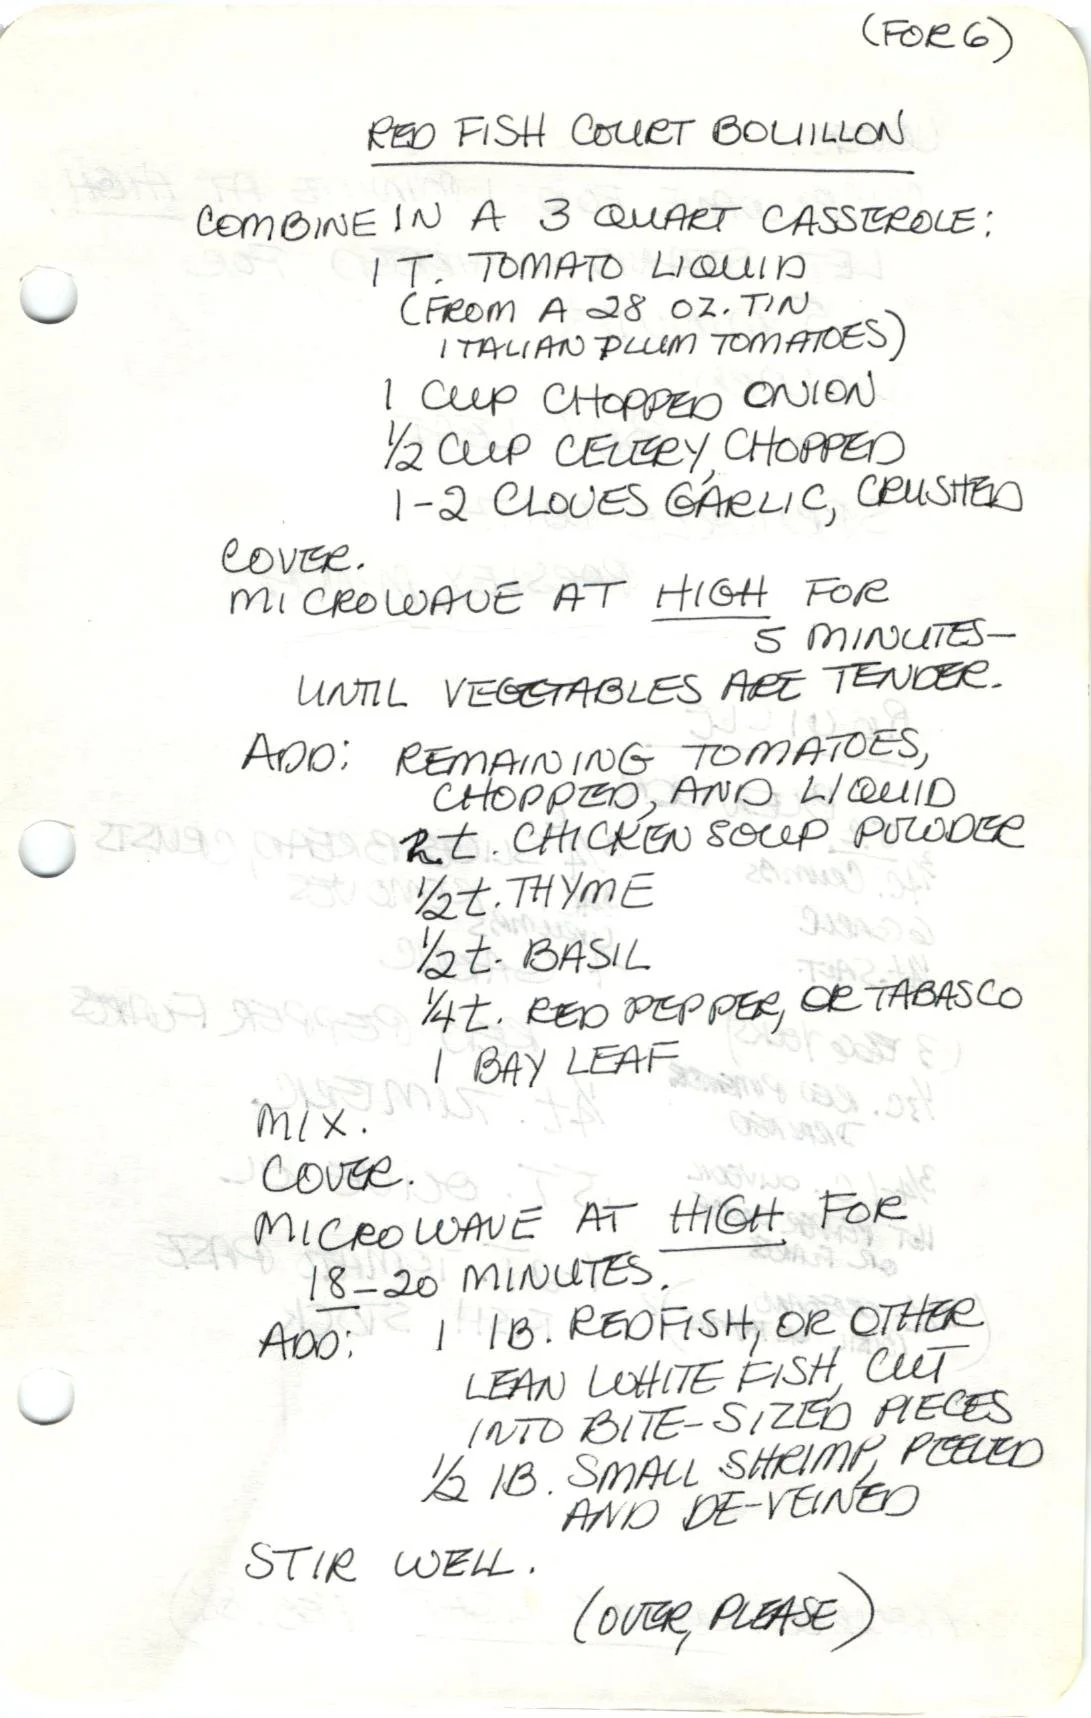 (FOR 6)
RED FISH COURT BOUILLON
COMBINE IN A 3 QUART CASSEROLE:
1 T. TOMATO LIQUID
(FROM A 28 OZ. TIN
ITALIAN PLUM TOMATOES)
1 CUP CHOPPED ONION
1/2 CUP CELERY, CHOPPED
1-2 CLOVES GARLIC, CRUSHED
COVER.
MICROWAVE AT HIGH FOR
5 MINUTES-
UNTIL VEGETABLES ARE TENDER.
ADD: REMAINING TOMATOES,
CHOPPED, AND LIQUID
2 t. CHICKEN SOUP POWDER
1/2 t. THYME
1/2 t. BASIL
1/4 t. RED PEPPER, OR TABASCO
1 BAY LEAF
MIX.
COVER.
MICROWAVE AT HIGH FOR
18-20 MINUTES.
ADD: 1 lB. REDFISH, OR OTHER
LEAN WHITE FISH, CUT
INTO BITE-SIZED PIECES
1/2 lB. SMALL SHRIMP, PEELED
AND DE-VEINED
STIR WELL.
(OVER, PLEASE)